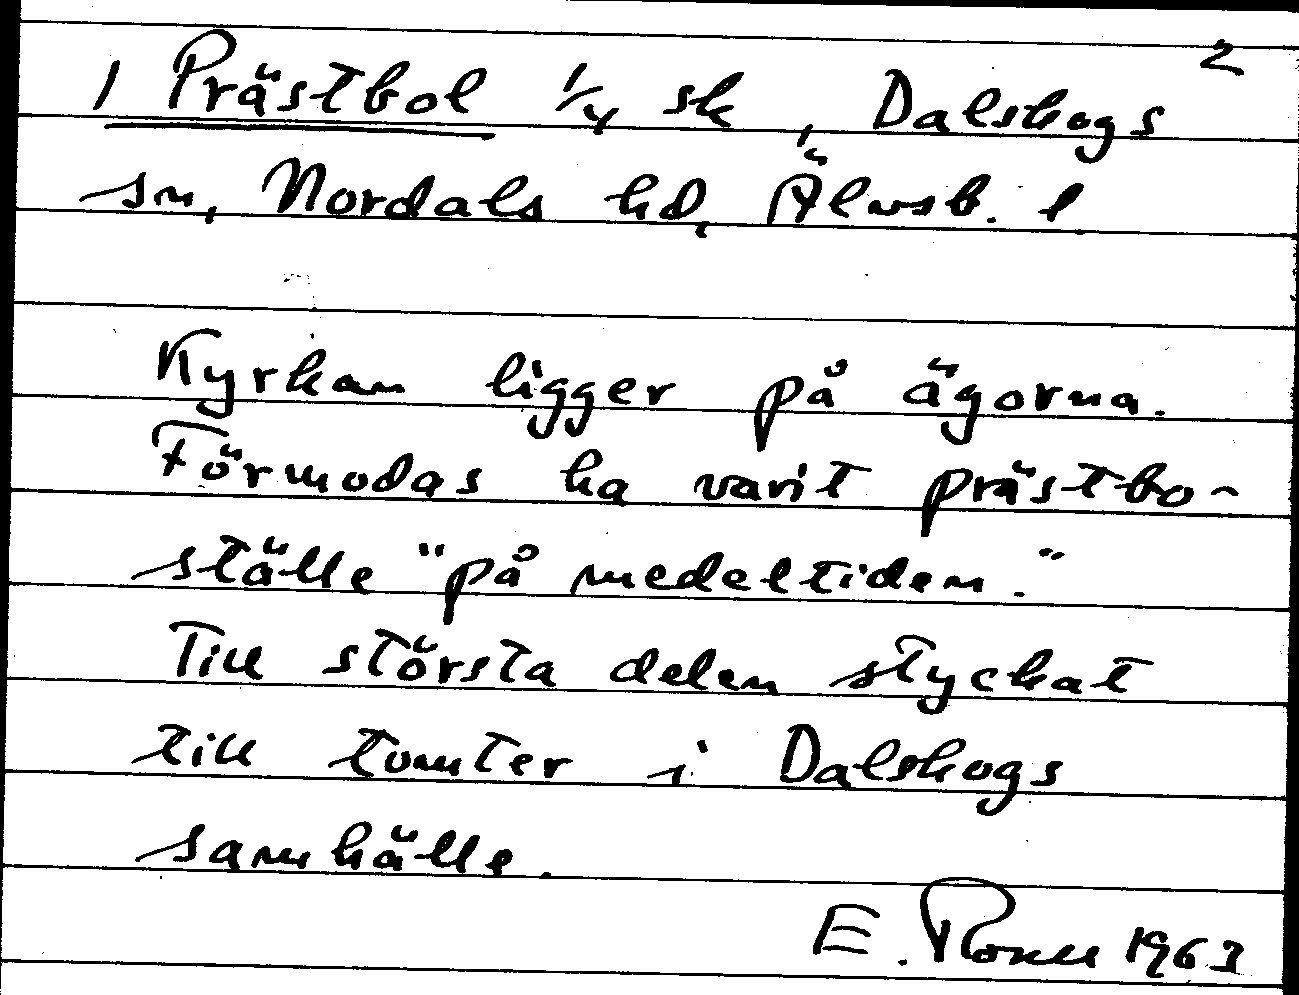 2
1 Prästbol 1/4 sk, Dalskogs
sn, Nordals hd, Älvsb. l.
Kyrkan ligger på ägorna.
Förmodas ha varit prästbo-
ställe "på medeltiden."
Till största delen styckat
till tomter i Dalskogs
samhälle.
E. 1963